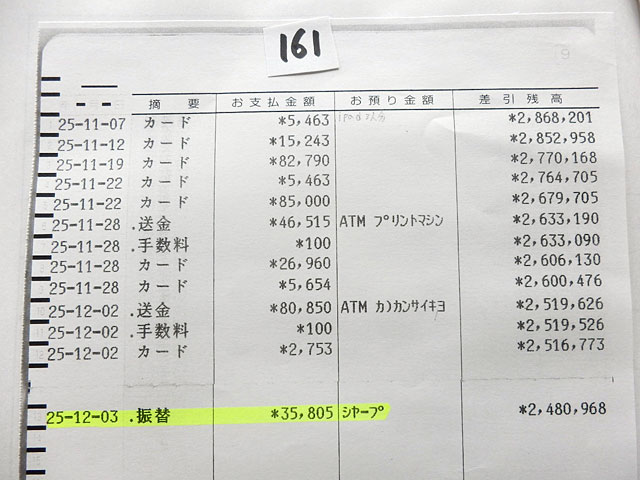 161
9
摘 要 お支払金額 お預り金額 差引残高
25-11-07 カード *5,463 *2,868,201
25-11-12 カード *15,243 *2,852,958
25-11-19 カード *82,790 *2,770,168
25-11-22 カード *5,463 *2,764,705
25-11-22 カード *85,000 *2,679,705
25-11-28 .送金 *46,515 ATM プリントマシン *2,633,190
25-11-28 .手数料 *100 *2,633,090
25-11-28 カード *26,960 *2,606,130
25-11-28 カード *5,654 *2,600,476
25-12-02 .送金 *80,850 ATM カ)カンサイキヨ *2,519,626
25-12-02 .手数料 *100 *2,519,526
25-12-02 カード *2,753 *2,516,773
25-12-03 .振替 *35,805 シヤープ *2,480,968